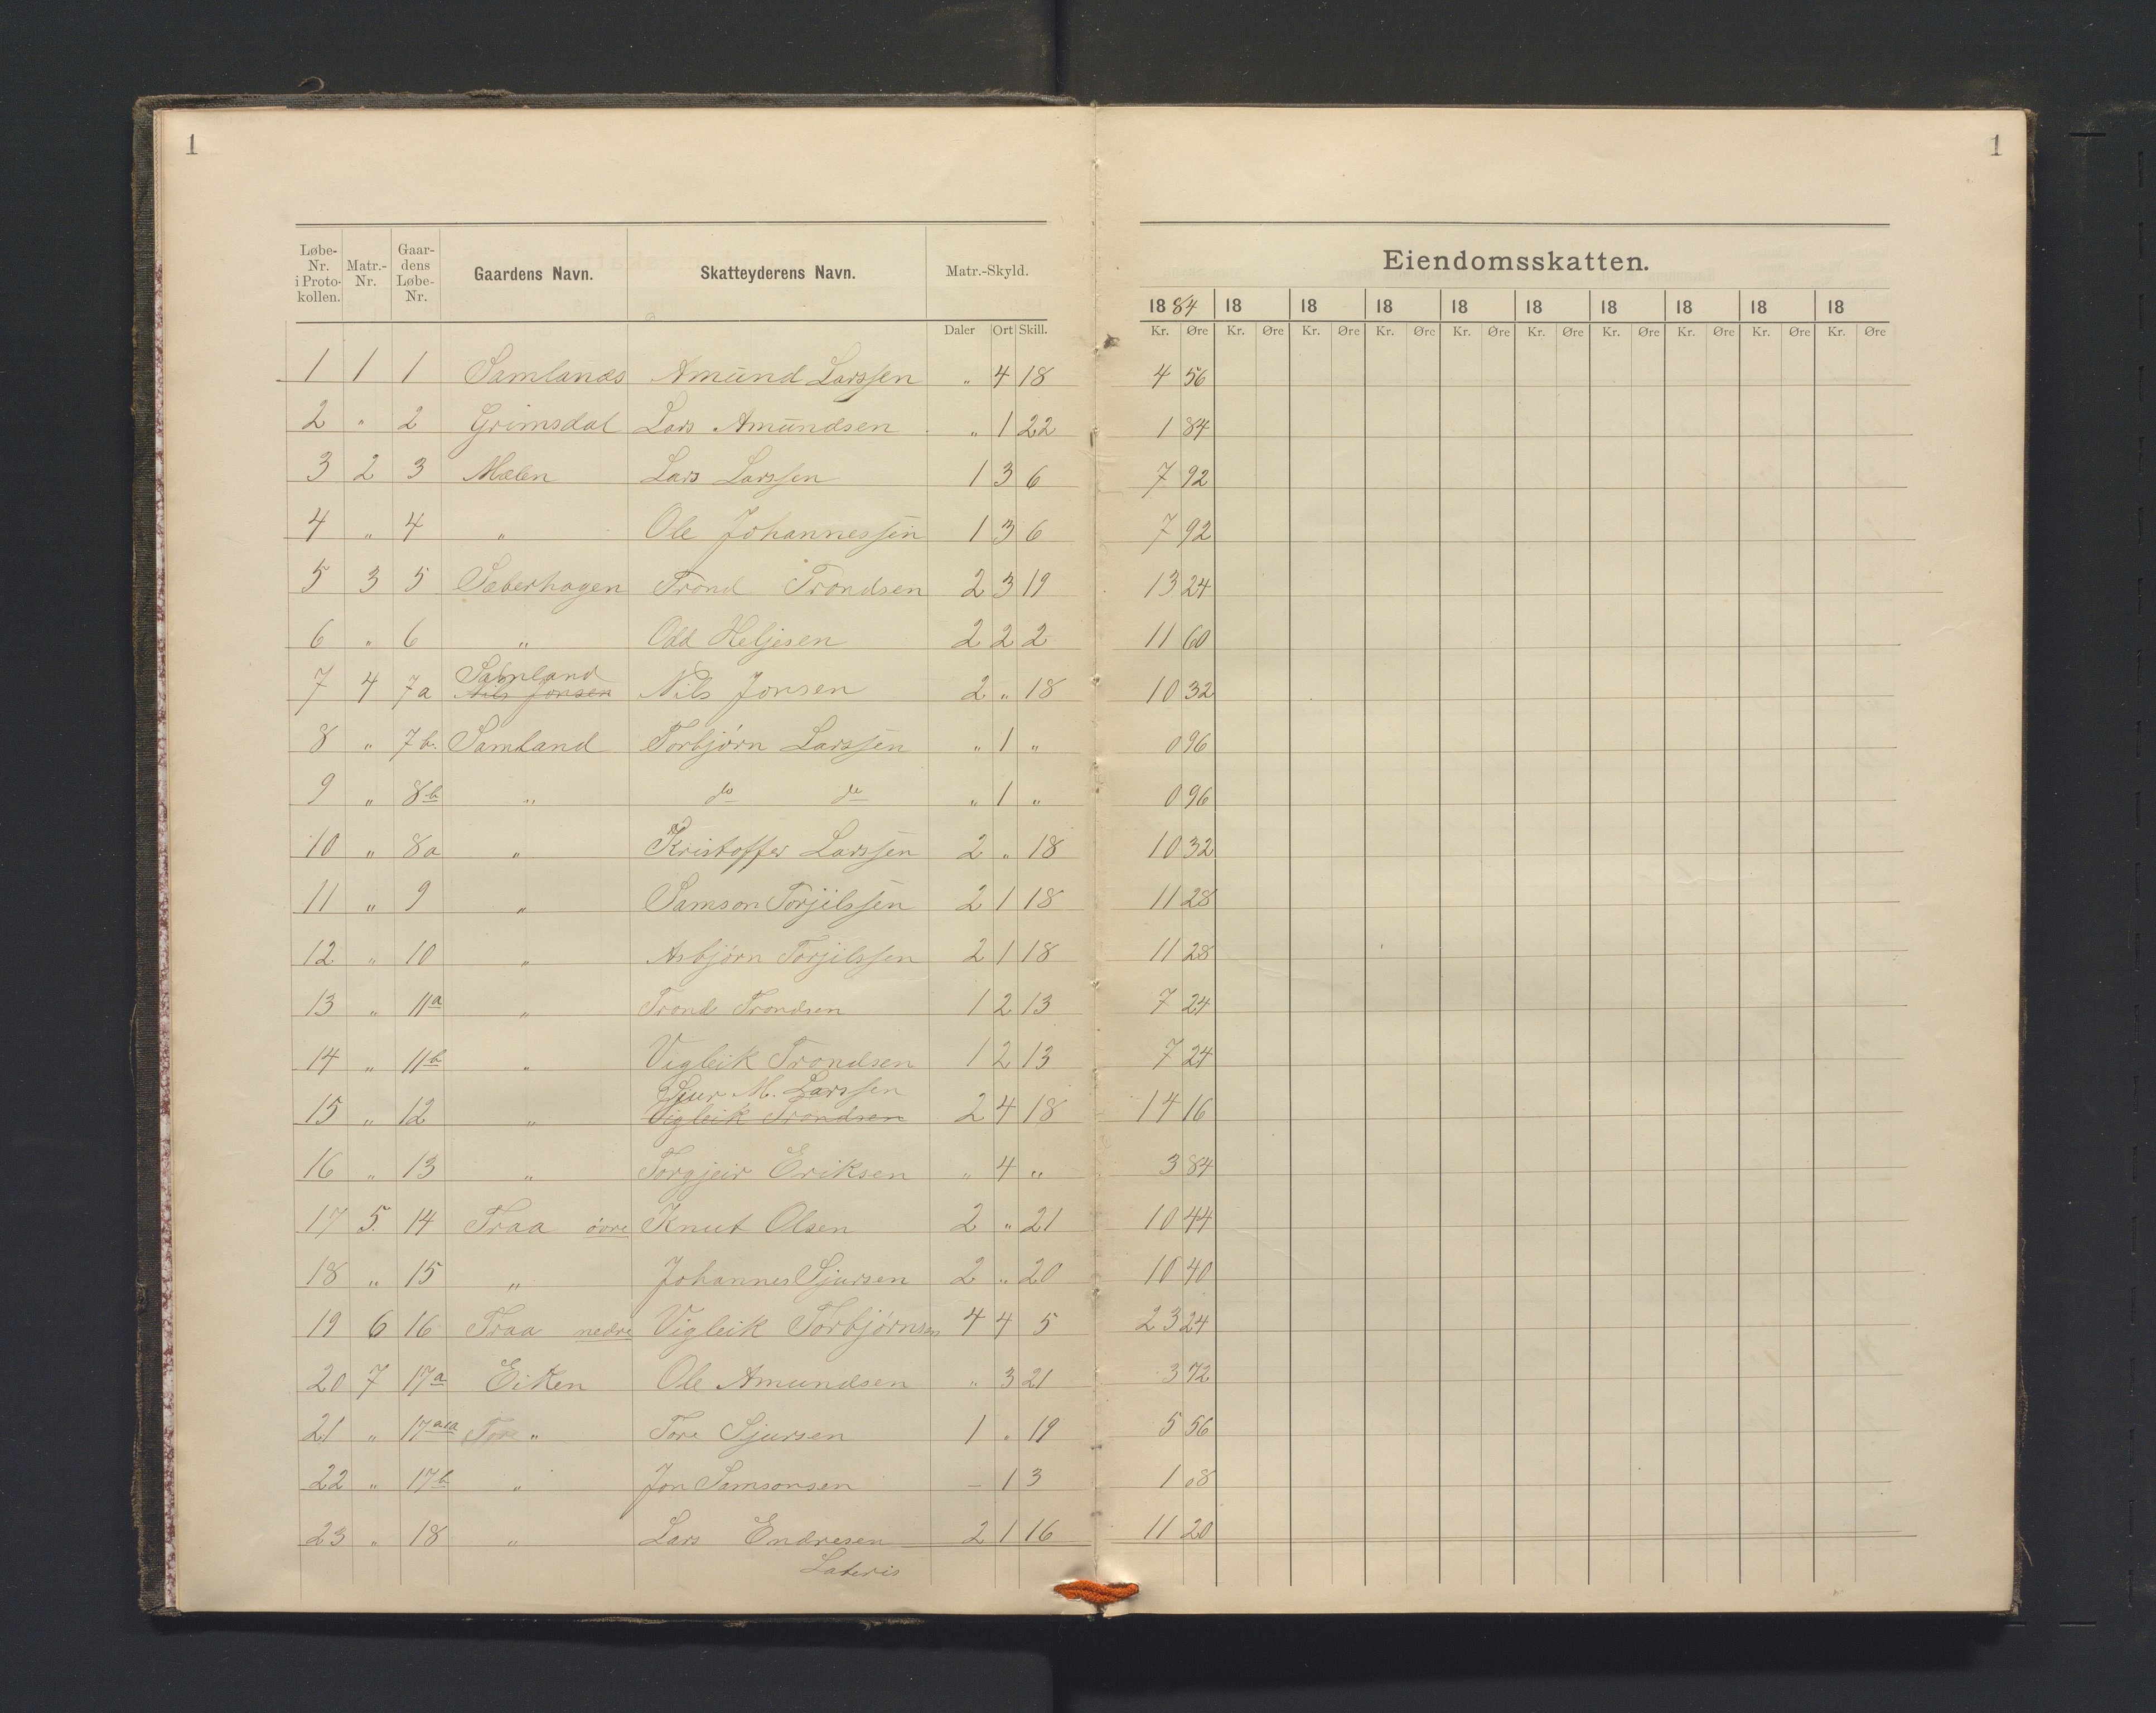 1
1
Løbe-Nr. i Proto-kollen. Matr.-Nr. Gaar-dens Løbe-Nr. Gaardens Navn. Skatteyderens Navn. Matr.-Skyld.
Daler Ort Skill.
Eiendomsskatten.
1884 18 18 18 18 18 18 18 18 18
Kr. Øre Kr. Øre Kr. Øre Kr. Øre Kr. Øre Kr. Øre Kr. Øre Kr. Øre Kr. Øre Kr. Øre
1 1 1 Samlands Amund Larssen " 4 18 4 56
2 " 2 Grimsdal Lars Amundsen " 1 22 1 84
3 2 3 Mælen Lars Larssen 1 3 6 7 92
4 " 4 " Ole Johannessen 1 3 6 7 92
5 3 5 Sæberhagen Trond Trondsen 2 3 19 13 24
6 " 6 " Odd Heljesen 2 2 2 11 60
7 4 7a Samland Nils Jonsen Nils Jonsen 2 " 18 10 32
8 " 7b. Samland Torbjørn Larssen " 1 " 0 96
9 " 8b " do do " 1 " 0 96
10 " 8a " Kristoffer Larssen 2 " 18 10 32
11 " 9 " Samson Torjilssen 2 1 18 11 28
12 " 10 " Asbjørn Torjilssen 2 1 18 11 28
13 " 11a " Trond Trondsen 1 2 13 7 24
14 " 11b " Vigleik Trondsen 1 2 13 7 24
Sjur M. Larssen
15 " 12 " Vigleik Trondsen 2 4 18 14 16
16 " 13 " Torgjeir Eriksen " 4 " 3 84
17 5. 14 Traa øvre Knut Olsen 2 " 21 10 44
18 " 15 " Johannes Sjursen 2 " 20 10 40
19 6 16 Traa nedre Vigleik Torbjørnsen 4 4 5 23 24
20 7 17a Eiken Ole Amundsen " 3 21 3 72
21 " 17aa Tore " Tore Sjursen 1 " 19 5 56
22 " 17b " Jon Samsonsen – 1 3 1 08
23 " 18 " Lars Endresen 2 1 16 11 20
Lateris